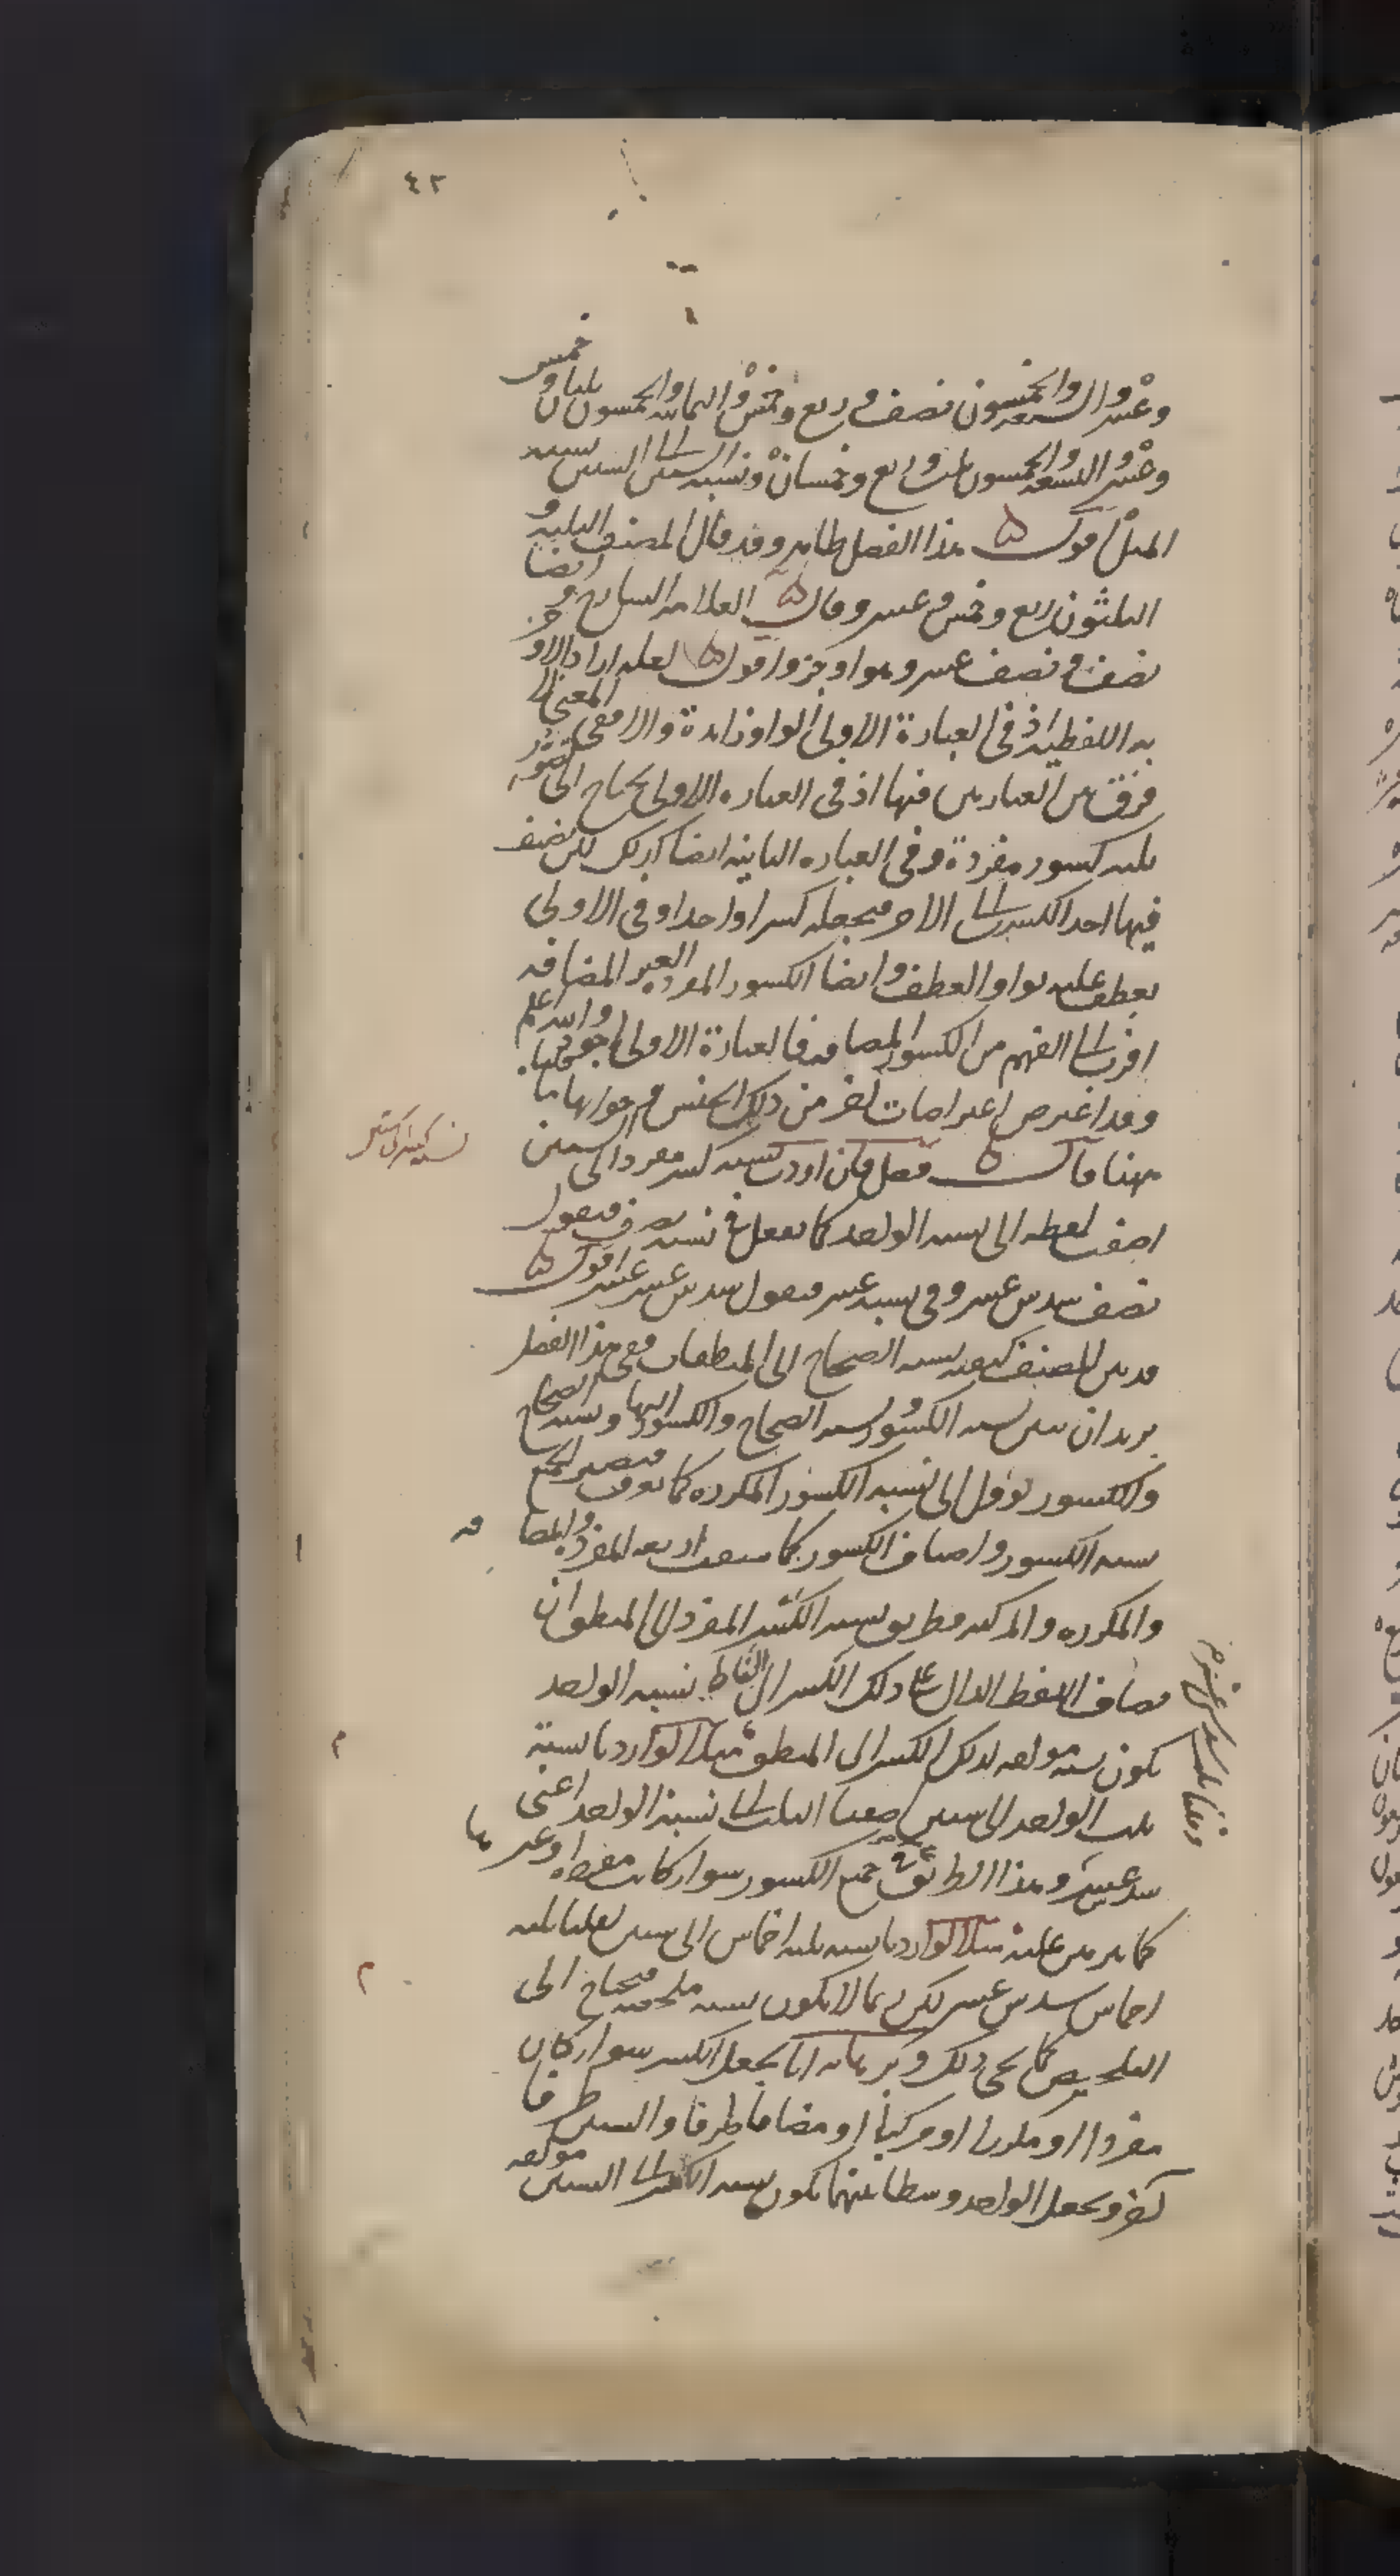 ٤٢
وعشر والسبعه والخمسون نصف و ربع وخمس والثمانيه والخمسون ثلثان وخمس
وعشر والتسعه والخمسون ثلث و ربع وخمسان ونسبه الستين الى الستين نسبه
المثل اقول هذا الفصل ظاهر وقد قال المصنف الثلثه و
الثلثون ربع وخمس وعشر وقال العلامه الشارح ايضا
نصف ونصف عشر وهو اوجز واقول لعله اراد بالاوجز
به اللفظيه اذ في العبارة الاولى الواو زايدة والا ففي المعنى لا
فرق بين العبارتين فيها اذ في العباره الاولى يحتاج الى تصور
ثلثه كسور مفردة وفي العباره الثانيه ايضا كذلك لكن يضيف
فيها احد الكسرين الى الاخر فيجعله كسرا واحدا وفي الاولى
يعطف عليه بواو العطف وايضا الكسور المفرده الغير المضافه
اقرب الى الفهم من الكسور المضافه فالعبارة الاولى اجود والله اعلم
وقد اعترض اعتراضات اخر من ذلك الجنس وجوابها ما
ههنا قال فصل فان اردت نسبه كسر مفرد الى الستين
اضفت لفظه الى نسبه الواحد كما تفعل في نسبه نصف فتقول
نصف سدس عشر وفي نسبه عشر فتقول سدس عشر عشر اقول
قد بين المصنف كيفيه نسبه الصحاح الى المنطقات ففي هذا الفصل
يريد ان يبين نسبه الكسور ونسبه الصحاح والكسور اليها ونسبه الصحاح
والكسور تؤول الى نسبه الكسور المكرره كما تعرف فيصير الجميع
نسبه الكسور واصناف الكسور كما سبقت اربعه المفرده والمضافه
والمكرره والمركبه فطريق نسبه الكسر المفرد الى المنطق ان
يضاف اللفظ الدال على ذلك الكسر الى الفاظ نسبه الواحد
يكون نسبه مولفه لذلك الكسر الى المنطق مثلا لو اردنا نسبة
ثلث الواحد الى ستين اضفنا الثلث الى نسبة الواحد اعني
سدس عشر وهذا الطريق في جميع الكسور سواء كانت مفرده او غيرها
كما يبرهن عليه مثلا لو اردنا نسبه ثلثه اخماس الى ستين لقلنا ثلثه
اخماس سدس عشر لكن ربما لا يكون نسبه ملخصه فيحتاج الى
التلخيص كما يجيء ذلك وبرهانه انا نجعل الكسر سواء كان
مفردا او مكررا او مركبا او مضافا طرفا والستين طرفا
اخر ونجعل الواحد وسطا بينهما يكون نسبه الكسر الى الستين مولفه